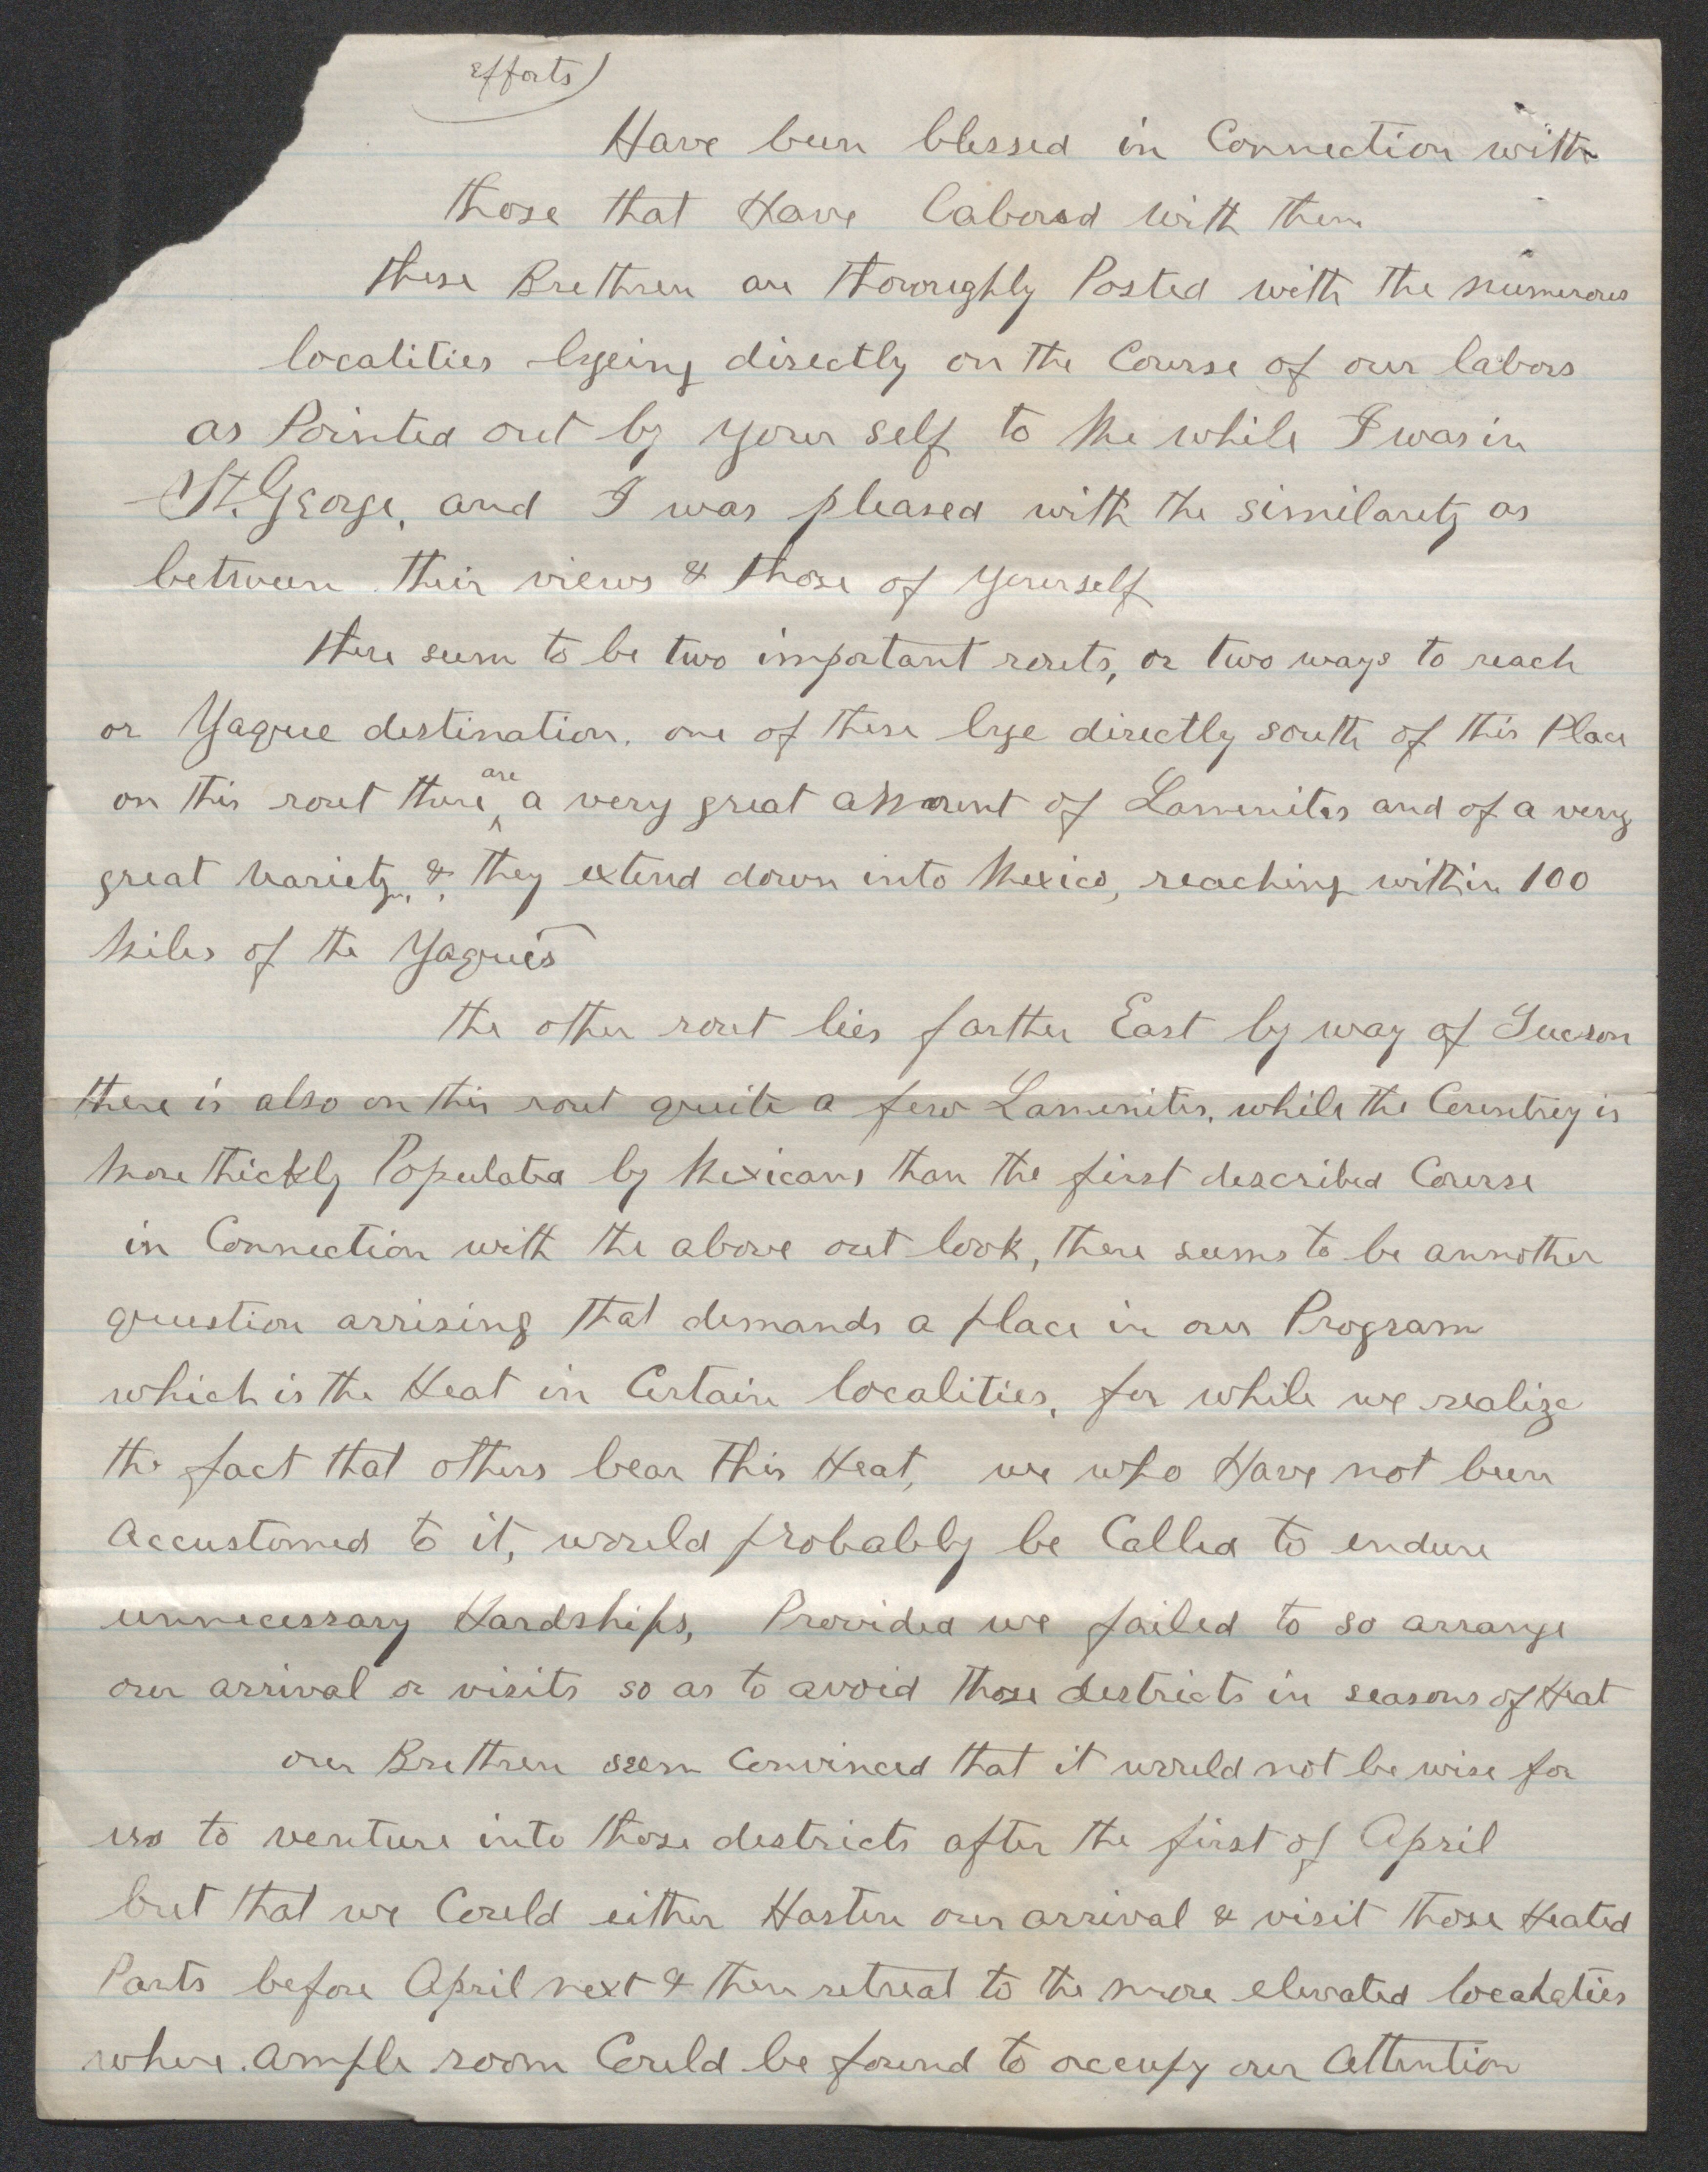 efforts)
Have been blessed in Connection with
those that Have labored with them
these Brethren are thoroughly Posted with the numerous
localities lyeing directly on the Course of our labors
as Pointed out by your self to Me while I was in
St. George, and I was pleased with the similarety as
between their views & those of yourself
there seem to be two important routs, or two ways to reach
or Yaquie destination. one of these lye directly south of this Place
on this rout there are a very great amount of Lamenites and of a very
great variety, & they extend down into Mexico, reaching within 100
Miles of the Yaquies
the other rout lies farther East by way of Tucson
there is also on this rout quite a few Lamenites, while the Country is
More thickly Populated by Mexicans than the first described Course
in Connection with the above out look, there seems to be annother
question arrising that demands a place in our Program
which is the Heat in Certain localities, for while we realize
the fact that others bear this Heat, we who Have not been
Accustomed to it, would probably be Called to endure
unnecessary Hardships, Provided we failed to so arrange
our arrival or visits so as to avoid those destricts in seasons of Heat
our Brethren seem Convinced that it would not be wise for
us to venture into those destricts after the first of April
but that we Could either Hasten our arrival & visit those Heated
Parts before April next & then retreat to the more elevated localaties
where ample room Could be found to occupy our Attention